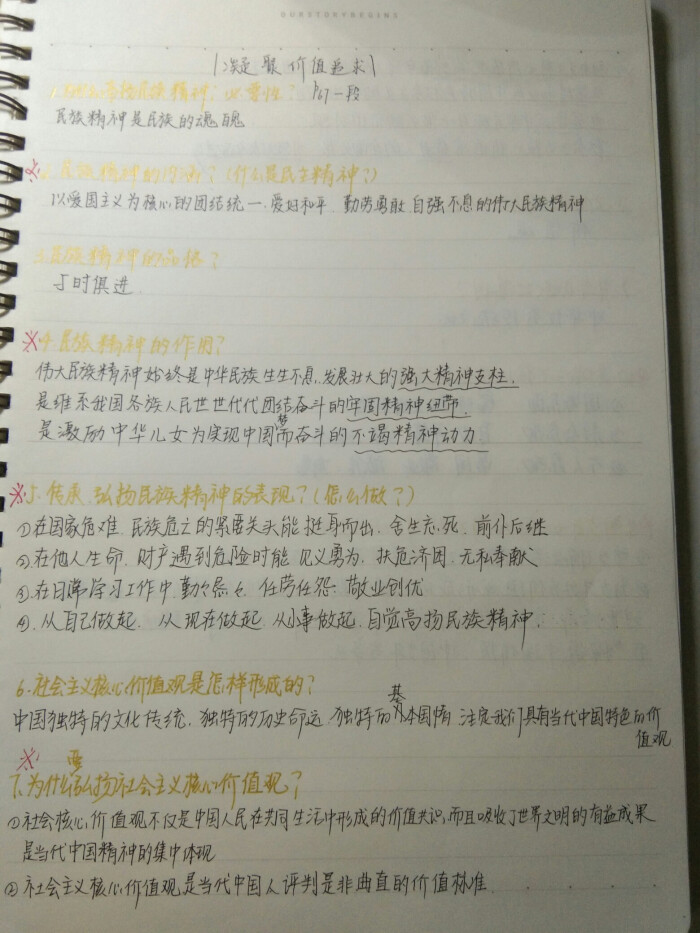 OURSTORYBEGINS
凝聚价值追求
1.为什么高扬民族精神?必要性? P67一段
民族精神是民族的魂魄
※2.民族精神的内涵?(什么是民族精神?)
以爱国主义为核心的团结统一.爱好和平 勤劳勇敢 自强不息的伟大民族精神
3.民族精神的品格?
与时俱进.
※4.民族精神的作用?
伟大民族精神始终是中华民族生生不息,发展壮大的强大精神支柱.
是维系我国各族人民世世代代团结奋斗的牢固精神纽带.
是激励中华儿女为实现中国梦而奋斗的不竭精神动力
※5.传承.弘扬民族精神的表现?(怎么做?)
①在国家危难.民族危亡的紧要关头能挺身而出.舍生忘死.前仆后继
②在他人生命.财产遇到危险时能 见义勇为,扶危济困.无私奉献
③在日常学习工作中勤勤恳恳.任劳任怨.敬业创优
④.从自己做起.从现在做起 从小事做起,自觉高扬民族精神.
6.社会主义核心价值观是怎样形成的?
中国独特的文化传统.独特的历史命运.独特的基本国情 注定我们具有当代中国特色的价值观
※7.为什么要弘扬社会主义核心价值观?
①社会核心价值观不仅是中国人民在共同生活中形成的价值共识,而且吸收了世界文明的有益成果
是当代中国精神的集中体现
②社会主义核心价值观是当代中国人评判是非曲直的价值标准.